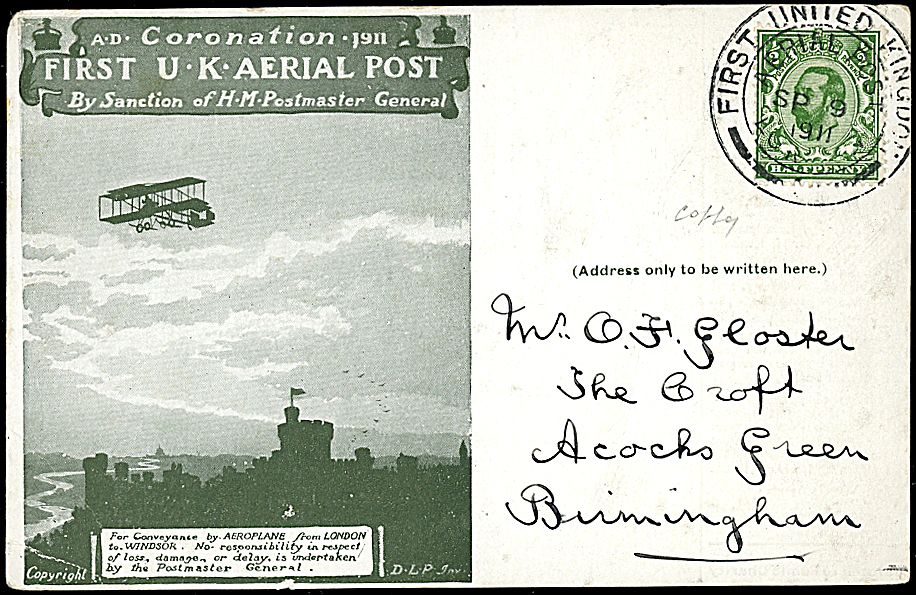 A·D· Coronation · 1911
FIRST U·K·AERIAL POST
By Sanction of H·M·Postmaster General
For Conveyance by AEROPLANE from LONDON
to WINDSOR. No responsibility in respect
of loss, damage, or delay, is undertaken
by the Postmaster General.
Copyright
D·L·P·Inv.
FIRST UNITED KINGDOM
AERIAL POST
SP 9
1911
HALFPENNY
(Address only to be written here.)
Mr. O. F. Gloster
The Croft
Acocks Green
Birmingham